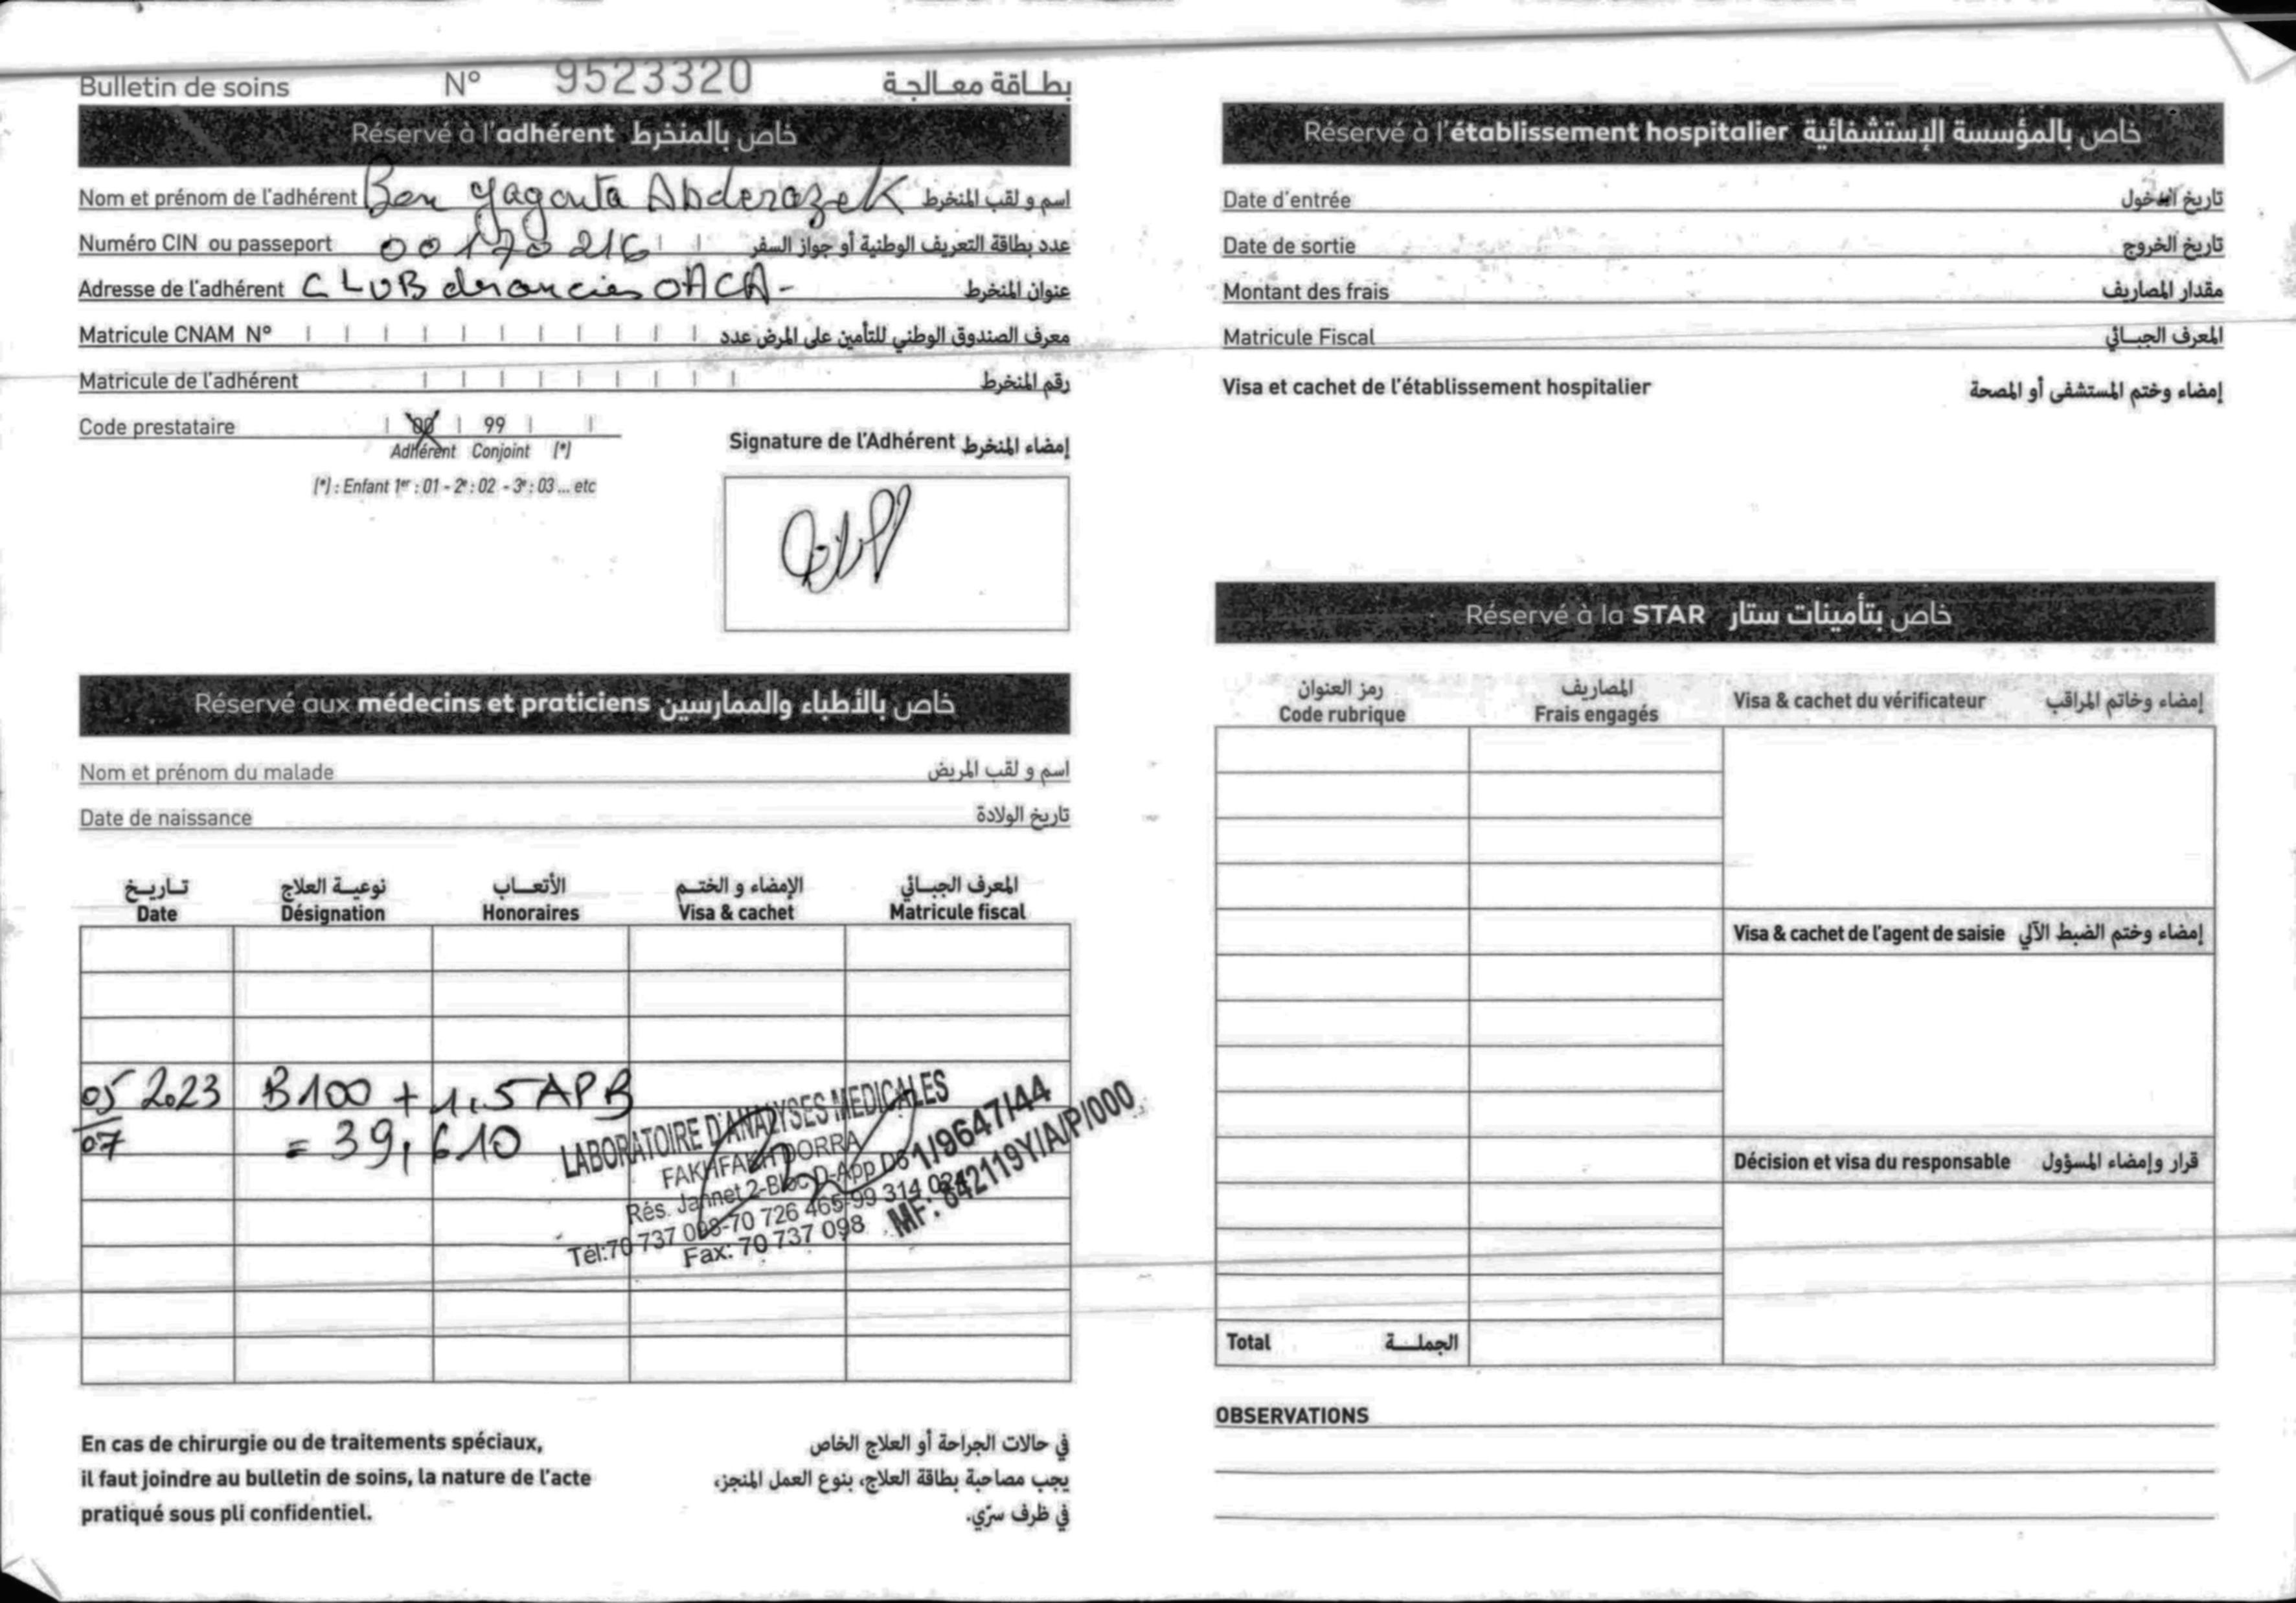 Bulletin de soins N° 9523320 بطاقة معالجة
Réservé à l'adhérent خاص بالمنخرط
Nom et prénom de l'adhérent Ben Yagouta Abderazek اسم و لقب المنخرط
Numéro CIN ou passeport 00170216 عدد بطاقة التعريف الوطنية أو جواز السفر
Adresse de l'adhérent CLUB des anciens OACA - عنوان المنخرط
Matricule CNAM N° معرف الصندوق الوطني للتأمين على المرض عدد
Matricule de l'adhérent رقم المنخرط
Code prestataire 00 99
Adhérent Conjoint (*)
(*) : Enfant 1er : 01 - 2e : 02 - 3e : 03 ... etc
Signature de l'Adhérent إمضاء المنخرط
Réservé aux médecins et praticiens خاص بالأطباء والممارسين
Nom et prénom du malade اسم و لقب المريض
Date de naissance تاريخ الولادة
تاريخ نوعية العلاج الأتعاب الإمضاء و الختم المعرف الجبائي
Date Désignation Honoraires Visa & cachet Matricule fiscal
05 2023 B100 + 1,5 APB
07 = 39,610
LABORATOIRE D'ANALYSES MEDICALES
FAKHFAKH DORRA
Rés. Jannet 2-Bloc D-App D6
Tél:70 737 098-70 726 465-99 314 024
Fax: 70 737 098
1/9647/44
MF: 642119Y/A/P/000
En cas de chirurgie ou de traitements spéciaux,
il faut joindre au bulletin de soins, la nature de l'acte
pratiqué sous pli confidentiel.
في حالات الجراحة أو العلاج الخاص
يجب مصاحبة بطاقة العلاج، بنوع العمل المنجز،
في ظرف سرّي.
Réservé à l'établissement hospitalier خاص بالمؤسسة الإستشفائية
Date d'entrée تاريخ الدخول
Date de sortie تاريخ الخروج
Montant des frais مقدار المصاريف
Matricule Fiscal المعرف الجبائي
Visa et cachet de l'établissement hospitalier إمضاء وختم المستشفى أو المصحة
Réservé à la STAR خاص بتأمينات ستار
رمز العنوان المصاريف
Code rubrique Frais engagés Visa & cachet du vérificateur إمضاء وخاتم المراقب
Visa & cachet de l'agent de saisie إمضاء وختم الضبط الآلي
Décision et visa du responsable قرار وإمضاء المسؤول
Total الجملة
OBSERVATIONS